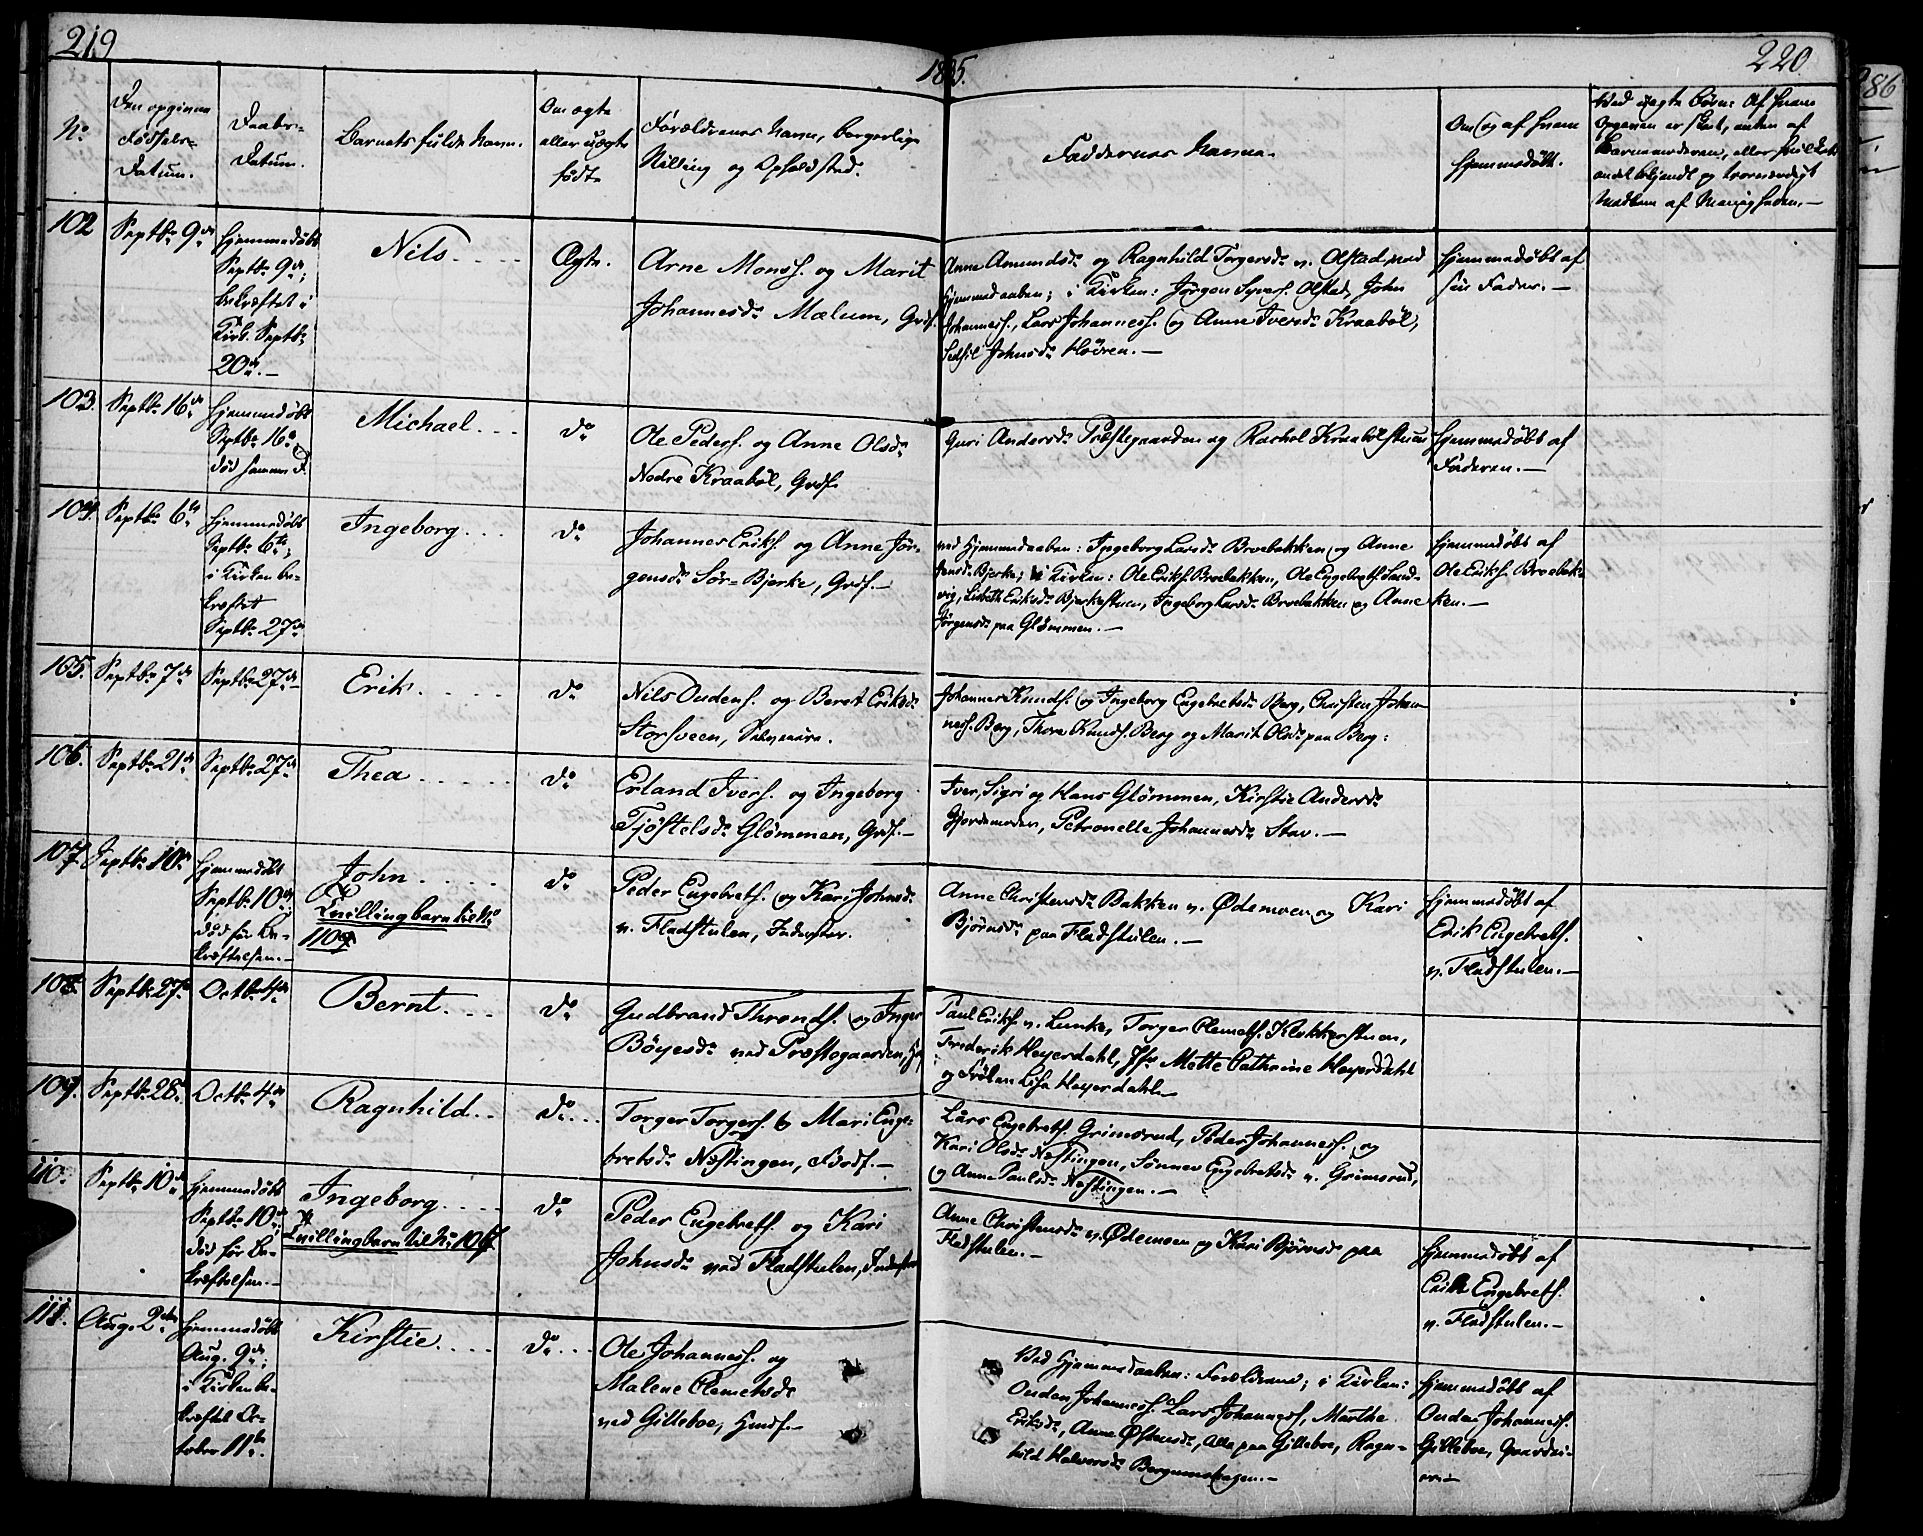 219
1835.
220
No
Den opgivne Fødsels-Datum.
Daabs-Datum.
Barnets fulde Navn.
Om ægte eller uægte født
Forældrenes Navn, borgerlige Stilling og Opholdsted.
Faddernes Navne.
Om og af hvem hjemmedøbt.
102
Septbr 9de
Hjemmedøbt
Septbr 9de;
bekræftet i
Kirk. Septbr
20de.-
Nils
Ægte.
Arne Monss. og Marit
Johannesdr Mælum, Grdf.
Anne Amundsdr og Ragnhild Torgersdr v. Olstad, ved
Hjemmedaaben; i Kirken: Jørgen Syvers. Olstad, John
Johanness., Lars Johanness. og Anne Iversdr Kraabøl,
Johnsdr Høvren.-
Hjemmedøbt af
sin Fader.-
103.
Septbr 16de
Hjemmedøbt
Septbr 16de
død samme D.
Michael
do
Ole Peders. og Anne Olsdr
Nodre Kraabøl, Grdf.
Guri Andersdr Præstegaarden og Rachel Kraabølstuen
Hjemmedøbt af
Faderen.-
104.
Septbr 6te
Hjemmedøbt
Septbr 6te,
i Kirken be-
kræftet
Septbr 27de
Ingeborg
do
Johannes Eriks. og Anne Jør-
gensdr Sør-Bjerke, Grdf.-
ved Hjemmedaaben: Ingeborg Larsdr Broebakken og Anne
Jensdr Bjerke; i Kirken: Ole Eriks. Broebakken, Ole Engebrets. Sand-
vig, Lisbeth Eriksdr Bjerkestuen, Ingeborg Larsdr Broebakken og Anne
Jørgensdr paa Glømmen.-
Hjemmedøbt af
Ole Eriks. Broebak-
ken.-
105.
Septbr 7de
Septbr 27de
Erik
do
Nils Oudens. og Beret Eriksdr
Storsveen, Selveiere.
Johannes Knuds. og Ingeborg Engebretsdr Berg, Christen Johan-
ness. Berg, Thore Knuds. Berg og Marit Olsdr paa Berg.
106.
Septbr 21de
Septbr 27de
Thea
do
Erland Ivers. og Ingeborg
Tjøstelsdr Glømmen, Grdf.-
Iver, Sigri og Hans Glømmen, Kirstie Andersdr
Gjordemoder, Petronelle Johannesdr Stav.-
107.
Septbr 10de
Hjemmedøbt
Septbr 10de;
død før Be-
kræftelsen.-
John
Tvillingbarn til No
110
do
Peder Engebrets. og Kari Johnsdr
v. Fladstulen, Inderster.
Anne Christensdr Bakken v. Ødemoen og Kari
Bjørnsdr paa Fladstulen.-
Hjemmedøbt af
Erik Engebrets.
v. Fladstulen.-
108.
Septbr 27de
Octbr 4de
Bernt
do
Gudbrand Thronds. og Inger
Bøyesdr ved Præstegaarden,
Paul Eriks. v. Lunke, Torger Clemets. Klokkerstuen,
Frederik Heyerdahl, Jfr Mette Cathrine Heyerdahl
og Frøken Lise Heyerdahl.-
109.
Septbr 28de
Octbr 4de
Ragnhild
do
Torger Torgers. og Mari Enge-
bretsdr Næstingen, Fødf.-
Lars Engebrets. Grimsrud, Peder Johanness. og
Kari Olsdr Næstingen, Sønnev Engebretsdr v. Grimsrud,
og Anne Paulsdr Næstingen.-
110.
Septbr 10de
Hjemmedøbt
Septbr 10de
død før Be-
kræftelsen.-
Ingeborg
Tvillingbarn til No 107
do
Peder Engebrets. og Kari
Johnsdr ved Fladstulen, Inderster
Anne Christensdr v. Ødemoen og Kari Bjørnsdr paa
Fladstulen.-
Hjemmedøbt af
Erik Engebrets.
v. Fladstulen.-
111.
Aug. 2den
Hjemmedøbt
Aug. 9de;
i Kirken be-
kræftet Oc-
tober 11te
Kirstie
do
Ole Johanness. og
Malene Clemetsdr
ved Gilleboe, Husf.-
Ved Hjemmedaaben: Forældrene; i Kirken:
Ouden Johanness. Lars Johanness., Marthe
Eriksdr, Anne Østensdr, alle paa Gilleboe, Ragn-
hild Halvorsdr Bergumshagen.-
Hjemmedøbt af
Ouden Johanness.
Gilleboe, Gaardei-
er.-